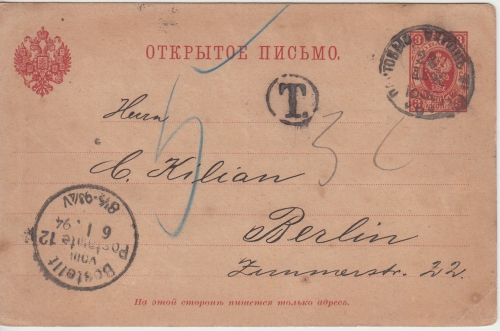 ОТКРЫТОЕ ПИСЬМО.
T.
Herrn
C. Kilian
Berlin
Zimmerstr. 22.
Bestellt
vom
Postamte 12
6 1. 94
8½-9¾V
На этой сторонѣ пишется только адресъ.